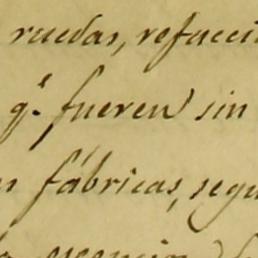 ruedas, refacci
q.e fueren sin
fábricas, segu